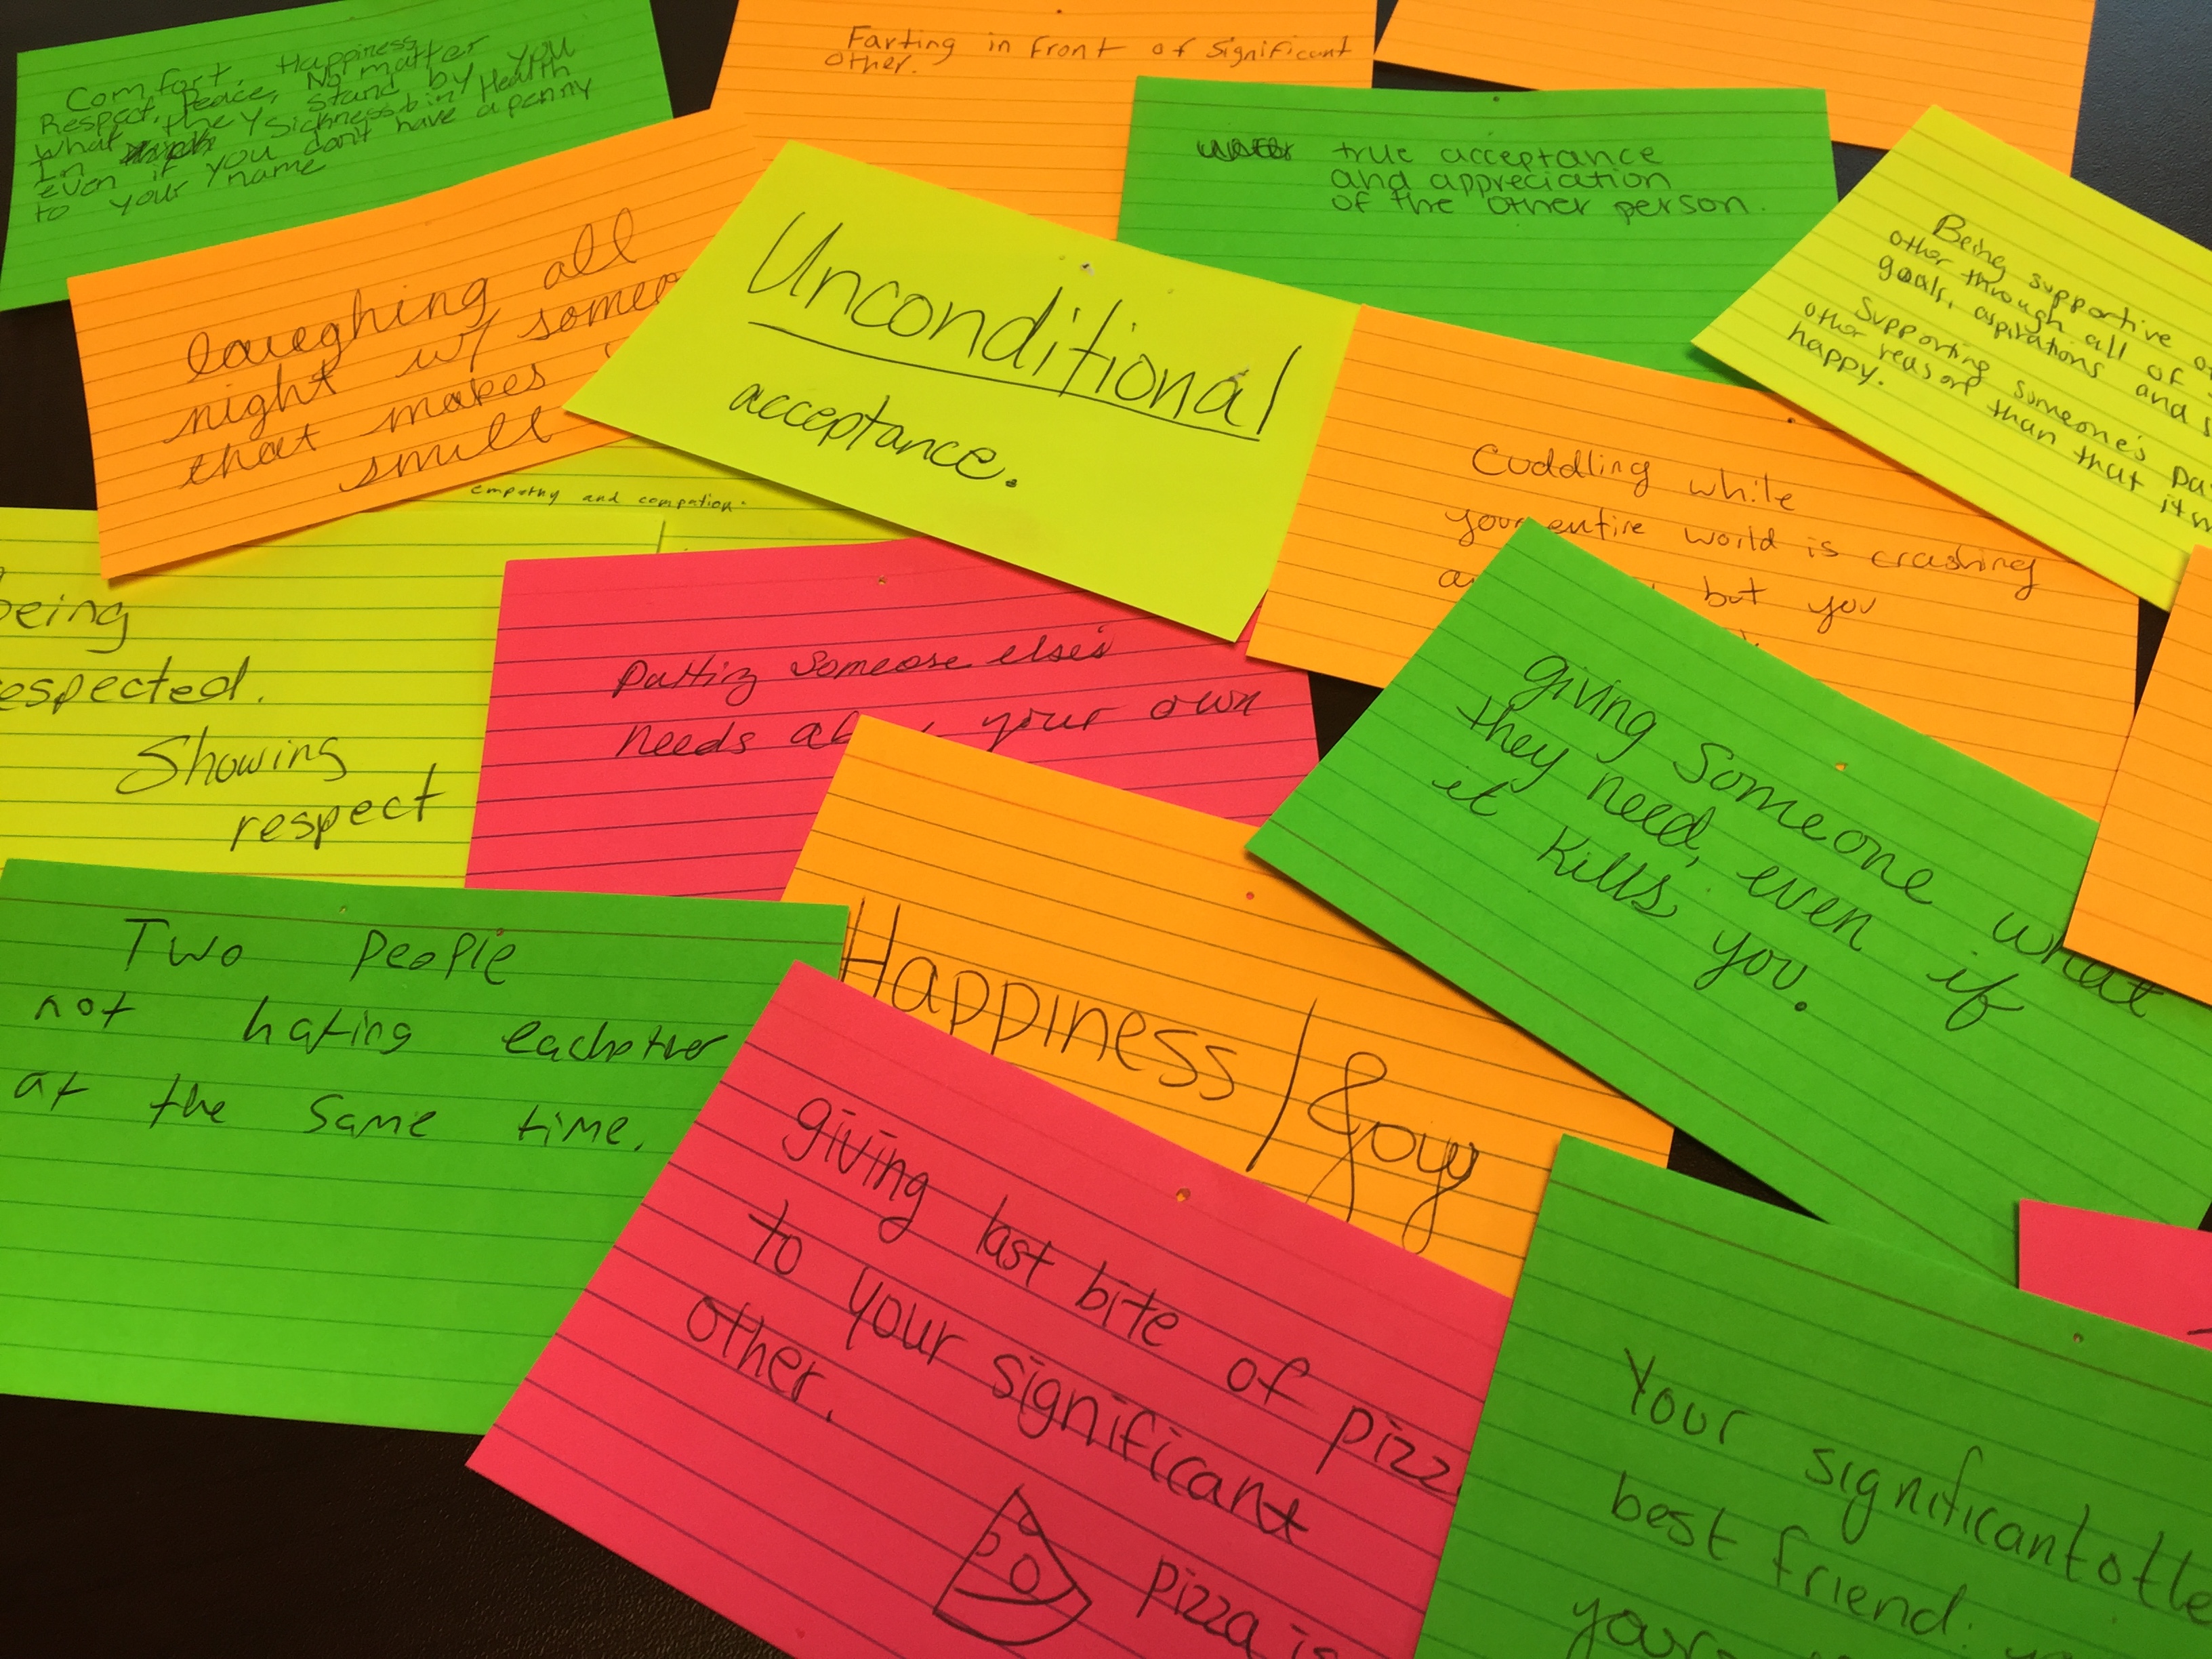 Comfort, Happiness
Respect, Peace, No matter
what they stand by you
In sickness in Health
even if you don't have a penny
to your name
Farting in front of significant
other.
true acceptance
and appreciation
of the other person.
Being supportive of
other through all of
goals, aspirations and
Supporting someone's
other reason than that it
happy.
laughing all
night w/
that makes
smill
Unconditional
acceptance.
empathy and compation.
Cuddling while
your entire world is crashing
but you
being
respected.
Showing
respect
Putting someone else's
needs your own
giving someone what
they need, even if
it kills you.
Two people
not hating eachother
at the same time.
Happiness / Joy
giving last bite of
to your significant
other.
pizza is
Your significant
best friend: